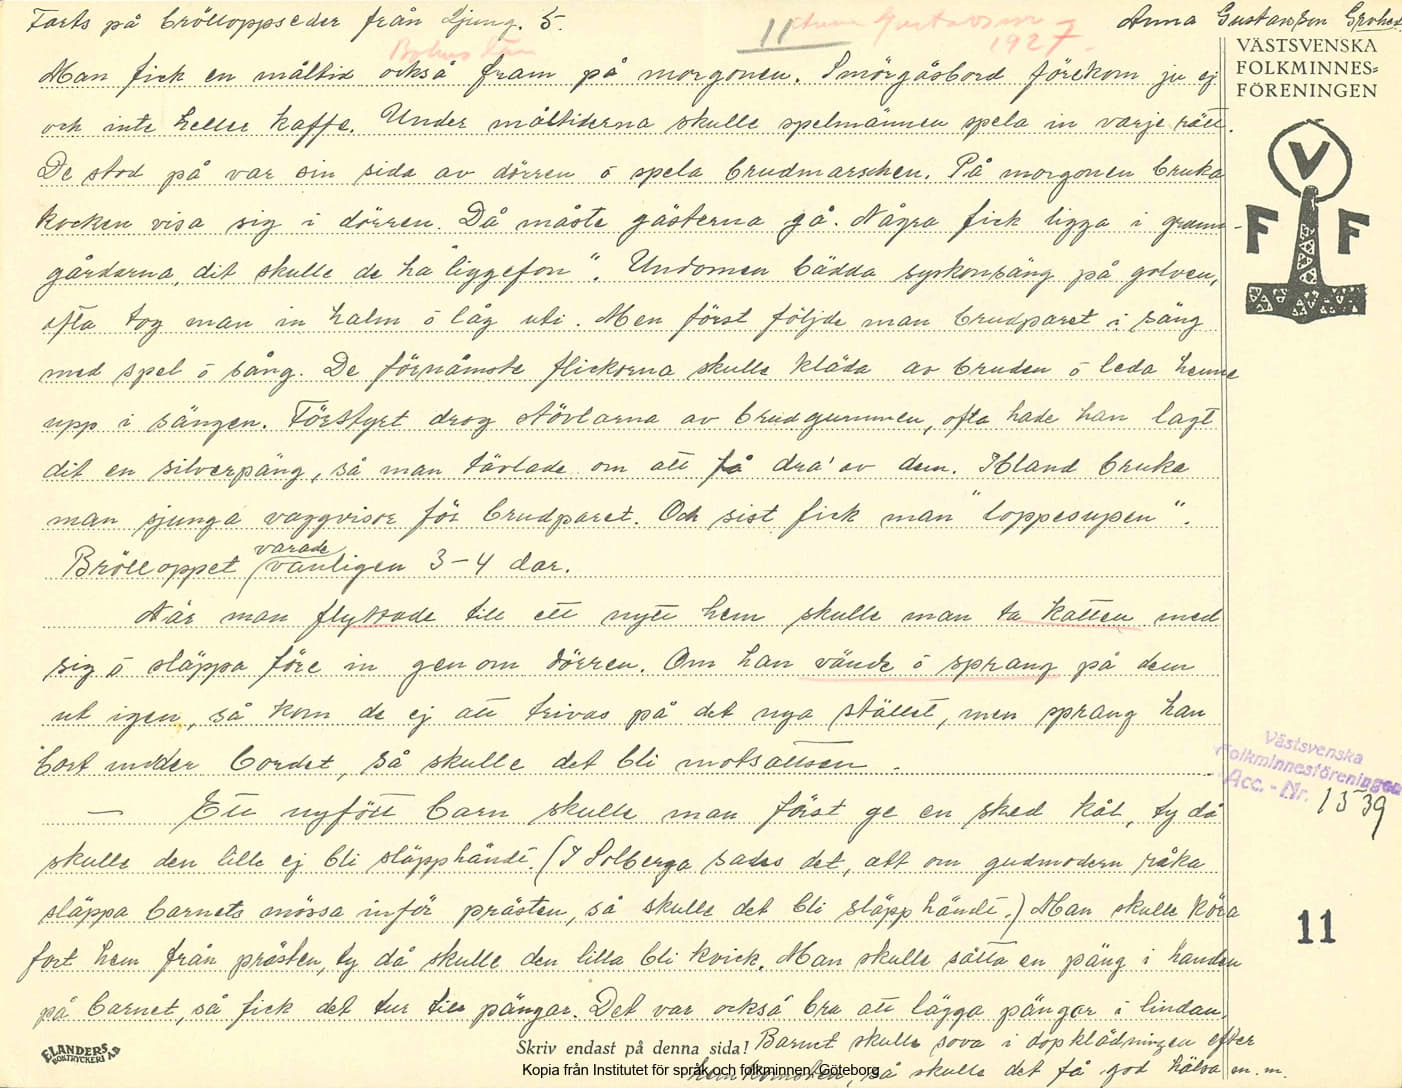 Forts på bröllopsseder från Ljung. 5.
11
Anna Gustavsson
1927.
Anna Gustavsson Grohed.
Bohuslän
VÄSTSVENSKA
FOLKMINNES=
FÖRENINGEN
V
F F
Man fick en måltid också fram på morgonen. Smörgåsbord förekom ju ej
och inte heller kaffe. Under måltiderna skulle spelmännen spela in varje rätt.
De stod på var sin sida av dörren ö spela brudmarschen. På morgonen bruka
kocken visa sig i dörren. Då måste gästerna gå. Några fick ligga i grann-
gårdarna, dit skulle de ha "liggefon". Ungdomen bädda syskonsäng på golven,
ofta tog man in halm ö låg uti. Men först följde man brudparet i säng
med spel ö sång. De förnämste flickorna skulle kläda av bruden ö leda henne
upp i sängen. Förstfyrt drog stövlarna av brudgummen, ofta hade han lagt
dit en silverpäng, så man tävlade om att få dra' av dem. Ibland bruka
man sjunga vaggvisor för brudparet. Och sist fick man "loppesupen".
Brölloppet varade vanligen 3-4 dar.
När man flyttade till ett nytt hem skulle man ta katten med
sig ö släppa före in genom dörren. Om han vände ö sprang på dem
ut igen, så kom de ej att trivas på det nya stället, men sprang han
bort under bordet, så skulle det bli motsattsen.
— Ett nyfött barn skulle man först ge en sked kål, ty då
skulle den lille ej bli släpphändt. (I Solberga sades det, att om gudmodern råka
släppa barnets mössa inför prästen, så skulle det bli släpphändt.) Man skulle köra
fort hem från prästen, ty då skulle den lilla bli kvick. Man skulle sätta en päng i handen
på barnet, så fick det tur till pängar. Det var också bra att lägga pängar i lindan.
Barnet skulle sova i dopklädningen efter
hemkomsten, så skulle det få god hälsa m. m.
Västsvenska
Folkminnesföreningen
Acc. - Nr. 1539
11
ELANDERS
BOKTRYCKERI A.B
Skriv endast på denna sida!
Kopia från Institutet för språk och folkminnen, Göteborg